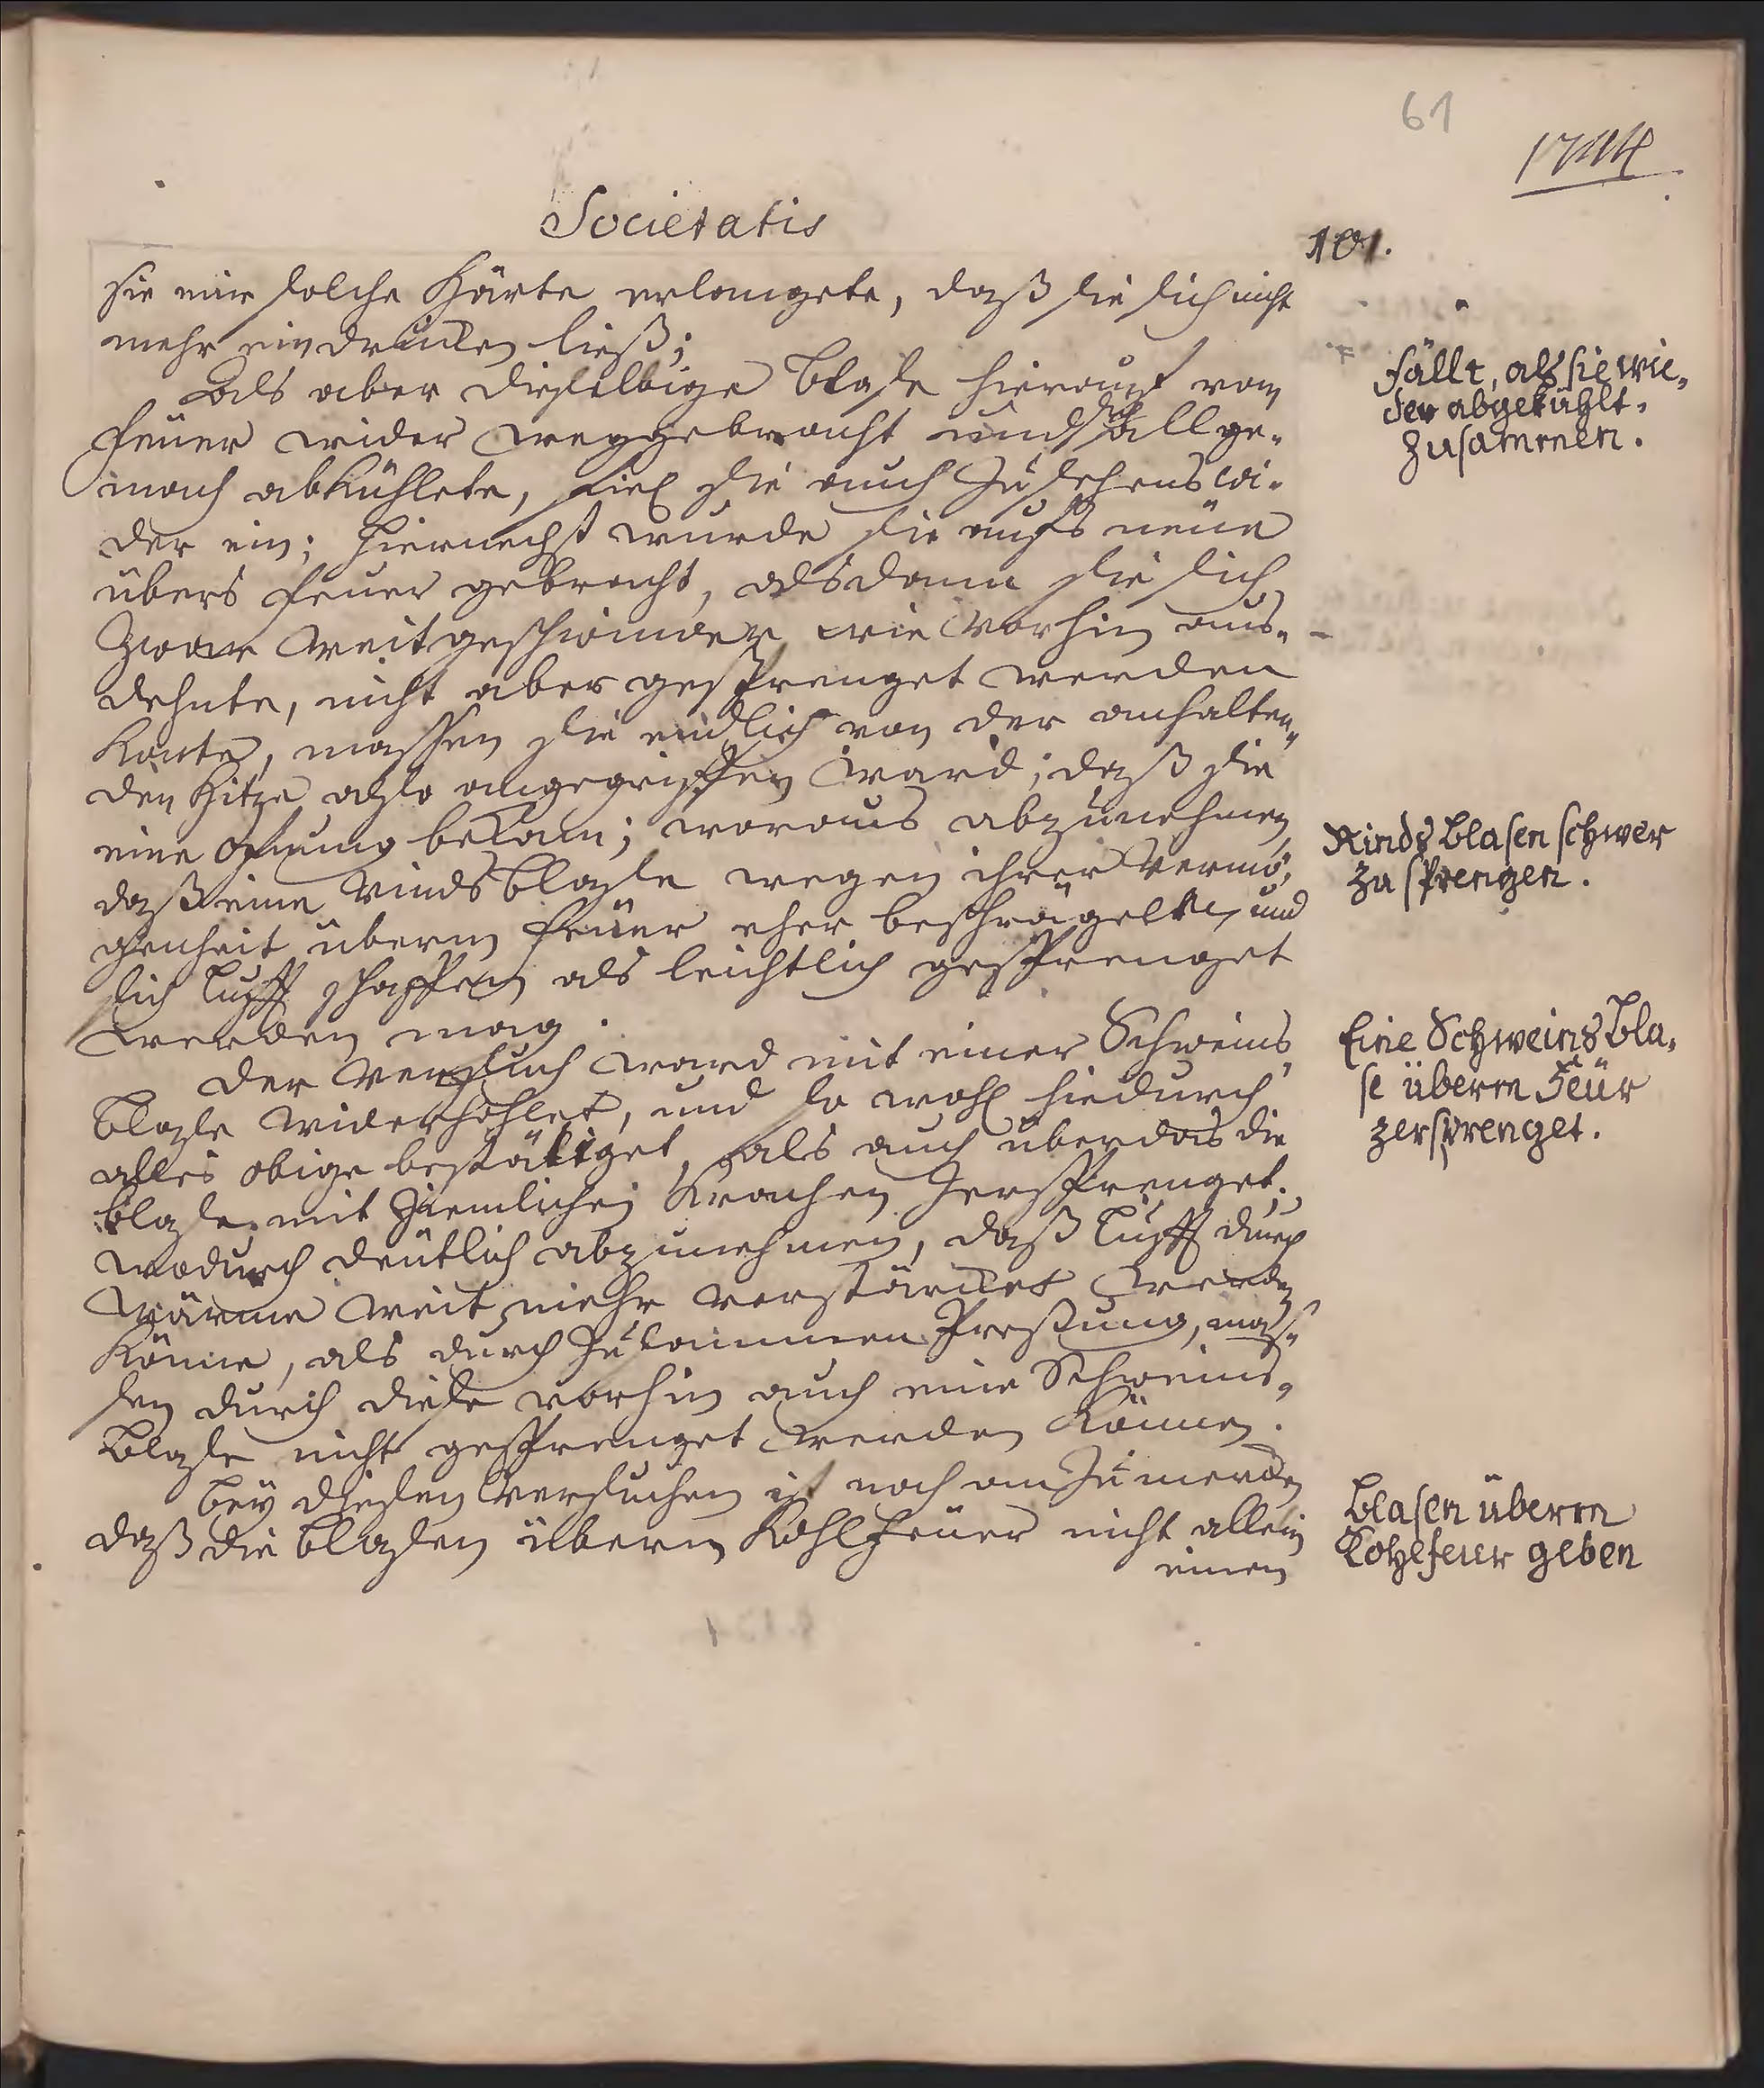 61
1744
Societatis
101.
sie eine solche Härte erlangete, daß sie sich nicht
mehr eindrucken ließ;
Als aber dieselbige Blase hierauf vom
Feuer wider weggebracht und sich allge-
mach abkühlete, fiel sie auch zusehens wi-
der ein; hiernechst wurde sie aufs neue
übers Feuer gebracht, alsdann sie sich
zwar weit geschwinder wie vorhin aus-
dehnte, nicht aber gesprenget werden
konte, massen sie endlich von der anhalten-
den Hitze also angegriffen ward; daß sie
eine Ofnung bekam; woraus abzunehmen,
daß eine Rinds Blase wegen ihrer Vermö-
genheit überm Feuer eher und
sich Lufft schaffen als leichtlich gesprenget
werden mag.
Der Versuch ward mit einer Schweins
Blase widerhohlet, und so wohl hiedurch
alles obige bestätiget, als auch überdas die
Blase mit ziemlichen Krachen zersprenget;
wodurch deutlich abzunehmen, daß Lufft durch
Wärme weit mehr verstärcket werden
könne, als durch Zusammen Preßung, mas-
sen durch diese vorhin auch eine Schweins-
Blase nicht gesprenget werden können.
Bey diesen Versuchen ist noch an zu mercken
daß die Blasen überm Kohlfeuer nicht allein
einen
fällt, als sie wie-
der abgekühlt,
zusammen.
Rinds Blasen schwer
zu sprengen.
Eine Schweins Bla-
se überm Feür
zersprenget.
Blasen überm
Kohlfeuer geben